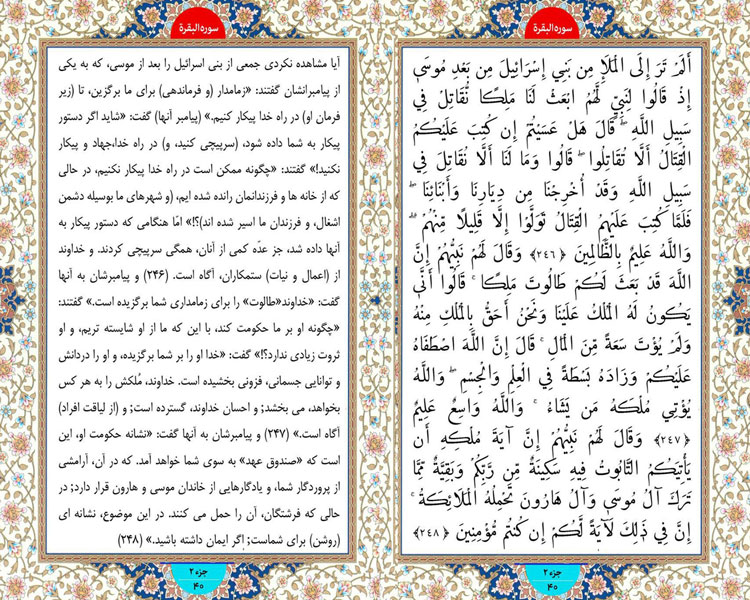 سوره‌البقرة
أَلَمْ تَرَ إِلَى الْمَلَإِ مِن بَنِي إِسْرَائِيلَ مِن بَعْدِ مُوسَىٰ
إِذْ قَالُوا لِنَبِيٍّ لَّهُمُ ابْعَثْ لَنَا مَلِكًا نُّقَاتِلْ فِي
سَبِيلِ اللَّهِ ۖ قَالَ هَلْ عَسَيْتُمْ إِن كُتِبَ عَلَيْكُمُ
الْقِتَالُ أَلَّا تُقَاتِلُوا ۖ قَالُوا وَمَا لَنَا أَلَّا نُقَاتِلَ فِي
سَبِيلِ اللَّهِ وَقَدْ أُخْرِجْنَا مِن دِيَارِنَا وَأَبْنَائِنَا ۖ
فَلَمَّا كُتِبَ عَلَيْهِمُ الْقِتَالُ تَوَلَّوْا إِلَّا قَلِيلًا مِّنْهُمْ ۗ
وَاللَّهُ عَلِيمٌ بِالظَّالِمِينَ ﴿۲۴۶﴾ وَقَالَ لَهُمْ نَبِيُّهُمْ إِنَّ
اللَّهَ قَدْ بَعَثَ لَكُمْ طَالُوتَ مَلِكًا ۚ قَالُوا أَنَّىٰ
يَكُونُ لَهُ الْمُلْكُ عَلَيْنَا وَنَحْنُ أَحَقُّ بِالْمُلْكِ مِنْهُ
وَلَمْ يُؤْتَ سَعَةً مِّنَ الْمَالِ ۚ قَالَ إِنَّ اللَّهَ اصْطَفَاهُ
عَلَيْكُمْ وَزَادَهُ بَسْطَةً فِي الْعِلْمِ وَالْجِسْمِ ۖ وَاللَّهُ
يُؤْتِي مُلْكَهُ مَن يَشَاءُ ۚ وَاللَّهُ وَاسِعٌ عَلِيمٌ
﴿۲۴۷﴾ وَقَالَ لَهُمْ نَبِيُّهُمْ إِنَّ آيَةَ مُلْكِهِ أَن
يَأْتِيَكُمُ التَّابُوتُ فِيهِ سَكِينَةٌ مِّن رَّبِّكُمْ وَبَقِيَّةٌ مِّمَّا
تَرَكَ آلُ مُوسَىٰ وَآلُ هَارُونَ تَحْمِلُهُ الْمَلَائِكَةُ ۚ
إِنَّ فِي ذَٰلِكَ لَآيَةً لَّكُمْ إِن كُنتُم مُّؤْمِنِينَ ﴿۲۴۸﴾
جزء ۲
۴۰
سوره‌البقرة
آیا مشاهده نکردی جمعی از بنی اسرائیل را بعد از موسی، که به یکی
از پیامبرانشان گفتند: «زمامدار (و فرماندهی) برای ما برگزین، تا (زیر
فرمان او) در راه خدا پیکار کنیم.» (پیامبر آنها) گفت: «شاید اگر دستور
پیکار به شما داده شود، (سرپیچی کنید، و) در راه خدا،جهاد و پیکار
نکنید!» گفتند: «چگونه ممکن است در راه خدا پیکار نکنیم، در حالی
که از خانه ها و فرزندانمان رانده شده ایم، (و شهرهای ما بوسیله دشمن
اشغال، و فرزندان ما اسیر شده اند)؟!» امّا هنگامی که دستور پیکار به
آنها داده شد، جز عدّه کمی از آنان، همگی سرپیچی کردند. و خداوند
از (اعمال و نیات) ستمکاران، آگاه است. (۲۴۶) و پیامبرشان به آنها
گفت: «خداوند«طالوت» را برای زمامداری شما برگزیده است.» گفتند:
«چگونه او بر ما حکومت کند، با این که ما از او شایسته تریم، و او
ثروت زیادی ندارد؟!» گفت: «خدا او را بر شما برگزیده، و او را دردانش
و توانایی جسمانی، فزونی بخشیده است. خداوند، مُلکش را به هر کس
بخواهد، می بخشد; و احسان خداوند، گسترده است; و (از لیاقت افراد)
آگاه است.» (۲۴۷) و پیامبرشان به آنها گفت: «نشانه حکومت او، این
است که «صندوق عهد» به سوی شما خواهد آمد. که در آن، آرامشی
از پروردگار شما، و یادگارهایی از خاندان موسی و هارون قرار دارد; در
حالی که فرشتگان، آن را حمل می کنند. در این موضوع، نشانه ای
(روشن) برای شماست; اگر ایمان داشته باشید.» (۲۴۸)
جزء ۲
۴۰